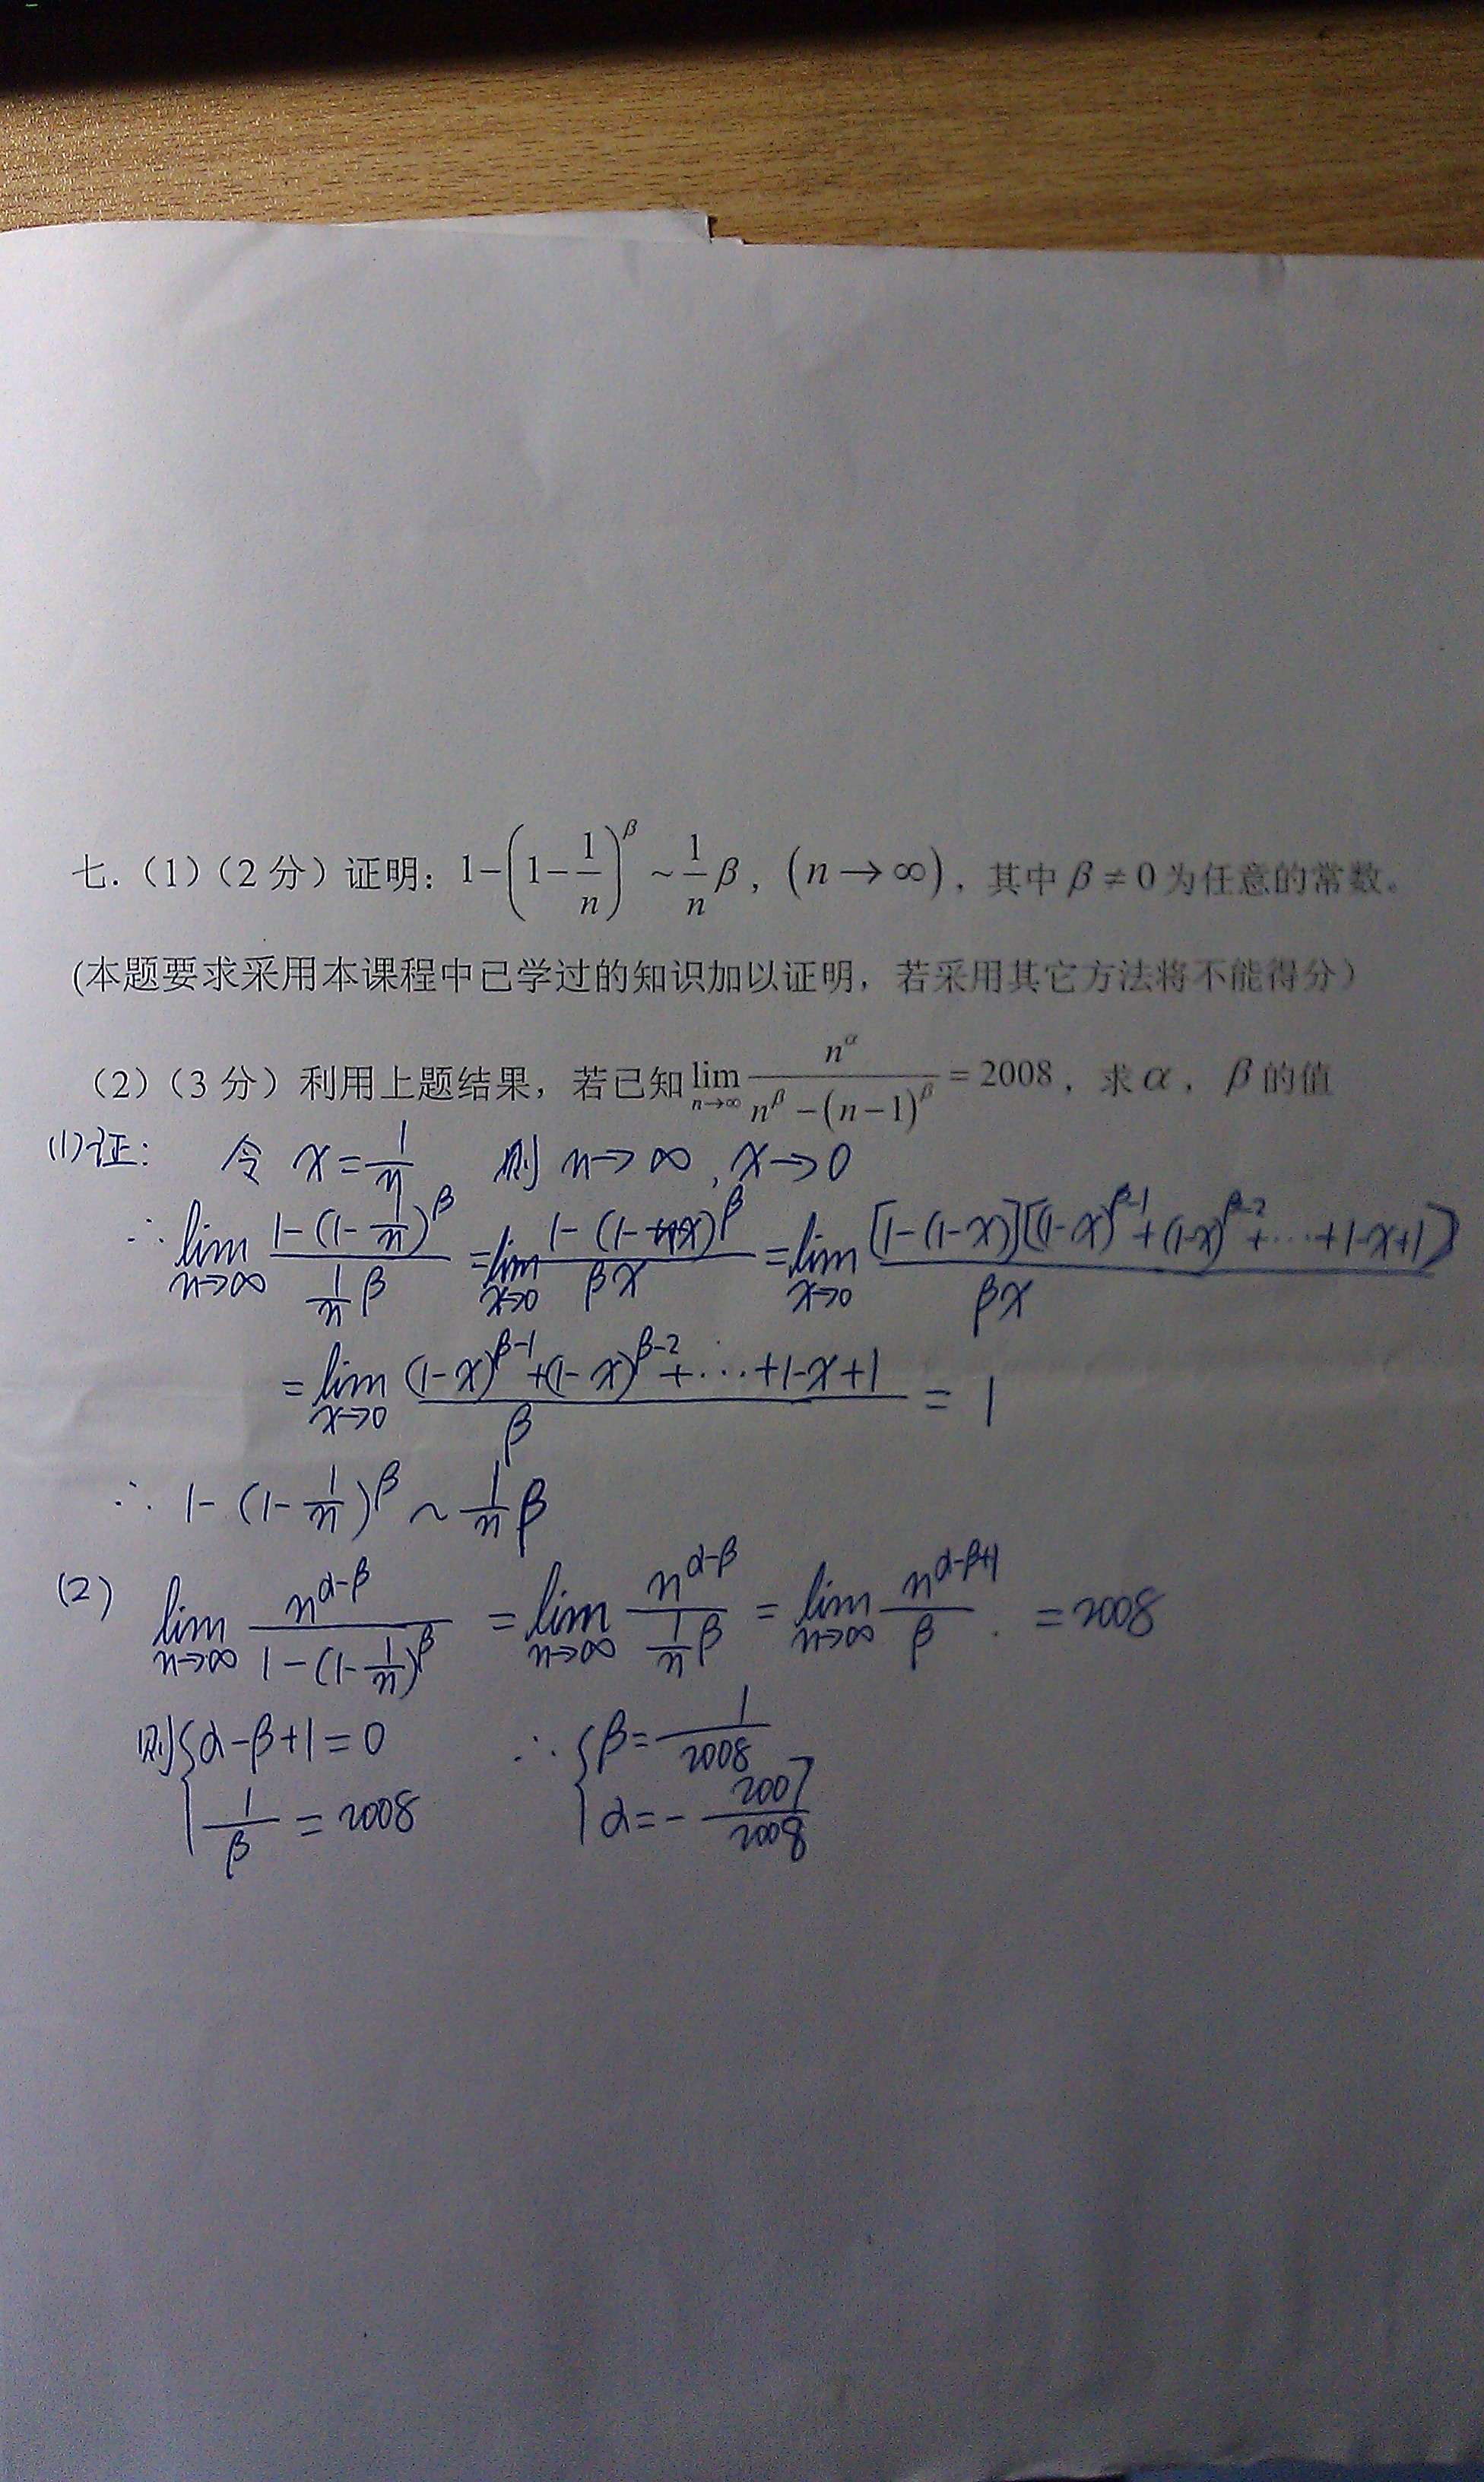 七.(1)(2分)证明:1-(1-1/n)^β ~ 1/n β,(n→∞),其中β≠0为任意的常数。
(本题要求采用本课程中已学过的知识加以证明,若采用其它方法将不能得分)
(2)(3分)利用上题结果,若已知 lim_{n→∞} n^α/(n^β-(n-1)^β) = 2008,求α,β的值
(1)证: 令 x=1/n 则 n→∞,x→0
∴ lim_{n→∞} (1-(1-1/n)^β)/(1/n β) = lim_{x→0} (1-(1-x)^β)/(βx) = lim_{x→0} ([1-(1-x)][(1-x)^{β-1}+(1-x)^{β-2}+⋯+1-x+1])/(βx)
= lim_{x→0} ((1-x)^{β-1}+(1-x)^{β-2}+⋯+1-x+1)/β = 1
∴ 1-(1-1/n)^β ~ 1/n β
(2) lim_{n→∞} n^{α-β}/(1-(1-1/n)^β) = lim_{n→∞} n^{α-β}/(1/n β) = lim_{n→∞} n^{α-β+1}/β = 2008
则{α-β+1=0 ∴ {β=1/2008
1/β=2008 α=-2007/2008